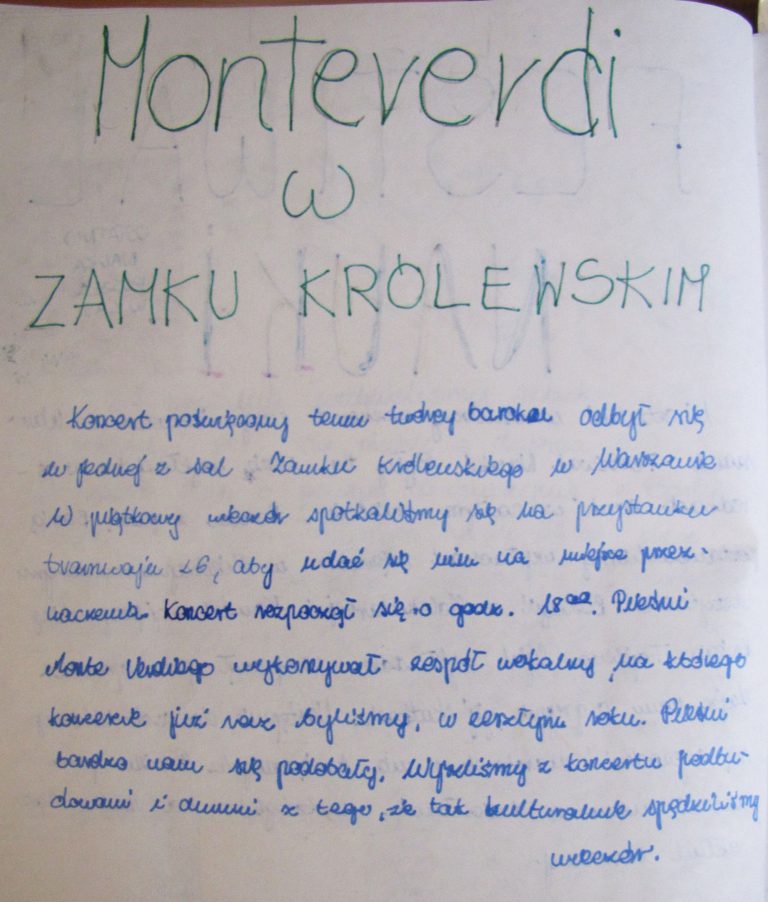 Monteverdi
w
ZAMKU KRÓLEWSKIM
Koncert poświęcony temu twórcy baroku odbył się
w jednej z sal Zamku Królewskiego w Warszawie
W piątkowy wieczór spotkaliśmy się na przystanku
tramwaju 26, aby udać się nim na miejsce przez-
naczenia. Koncert rozpoczął się o godz. 18:00. Pieśni
Monte Verdiego wykonywał zespół wokalny, na którego
koncercie już raz byliśmy, w zeszłym roku. Pieśni
bardzo nam się podobały. Wyszliśmy z koncertu podbu-
dowani i dumni z tego, że tak kulturalnie spędziliśmy
wieczór.